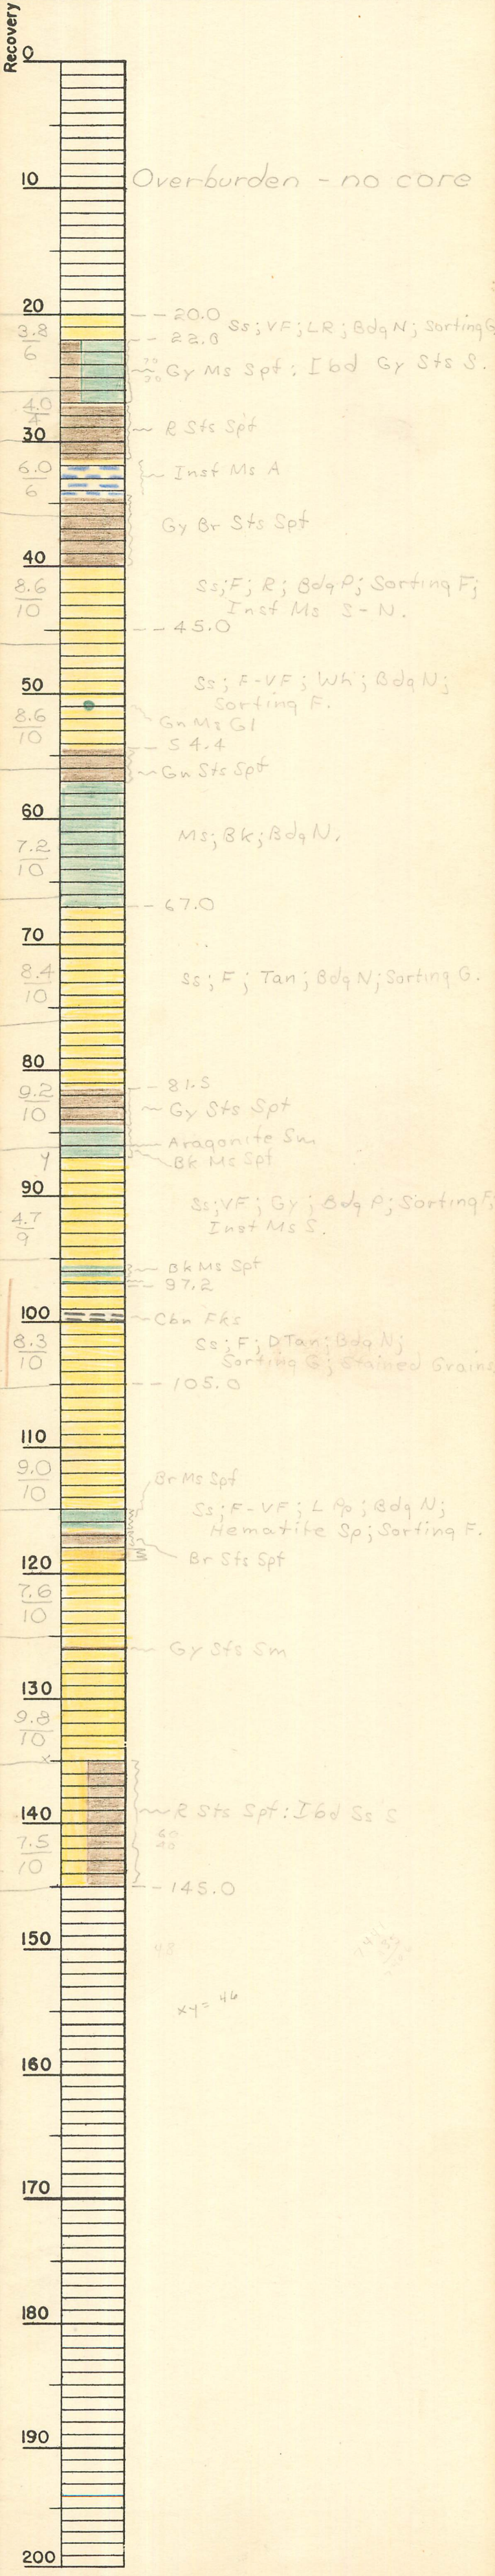 Recovery
0
10 Overburden - no core
20 -- 20.0
3.8 Ss; VF; LR; Bdg N; Sorting G
6 -- 22.8
70
30 Gy Ms Spt: Ibd Gy Sts S.
4.0
4 R Sts Spt
30
6.0 Inst Ms A
6
Gy Br Sts Spt
40
8.6 Ss; F; R; Bdg P; Sorting F;
10 Inst Ms S-N.
-- 45.0
50 Ss; F-VF; Wh; Bdg N;
Sorting F.
8.6 Gn Ms Gl
10 -- 54.4
Gn Sts Spt
60
Ms; Bk; Bdg N.
7.2
10
-- 67.0
70
8.4 Ss; F; Tan; Bdg N; Sorting G.
10
80
-- 81.5
9.2 Gy Sts Spt
10
Aragonite Sm
y Bk Ms Spt
90 Ss; VF; Gy; Bdg P; Sorting F;
4.7 Inst Ms S.
9
Bk Ms Spt
-- 97.2
100 Cbn Fks
8.3 Ss; F; D Tan; Bdg N;
10 Sorting G; Stained Grains
-- 105.0
110
9.0 Br Ms Spt
10
Ss; F-VF; L Pp; Bdg N;
Hematite Sp; Sorting F.
120 Br Sts Spt
7.6
10
Gy Sts Sm
130
9.8
10
x
140 R Sts Spt: Ibd Ss S
60
40
7.5
10
-- 145.0
150 48
xy = 46
160
170
180
190
200